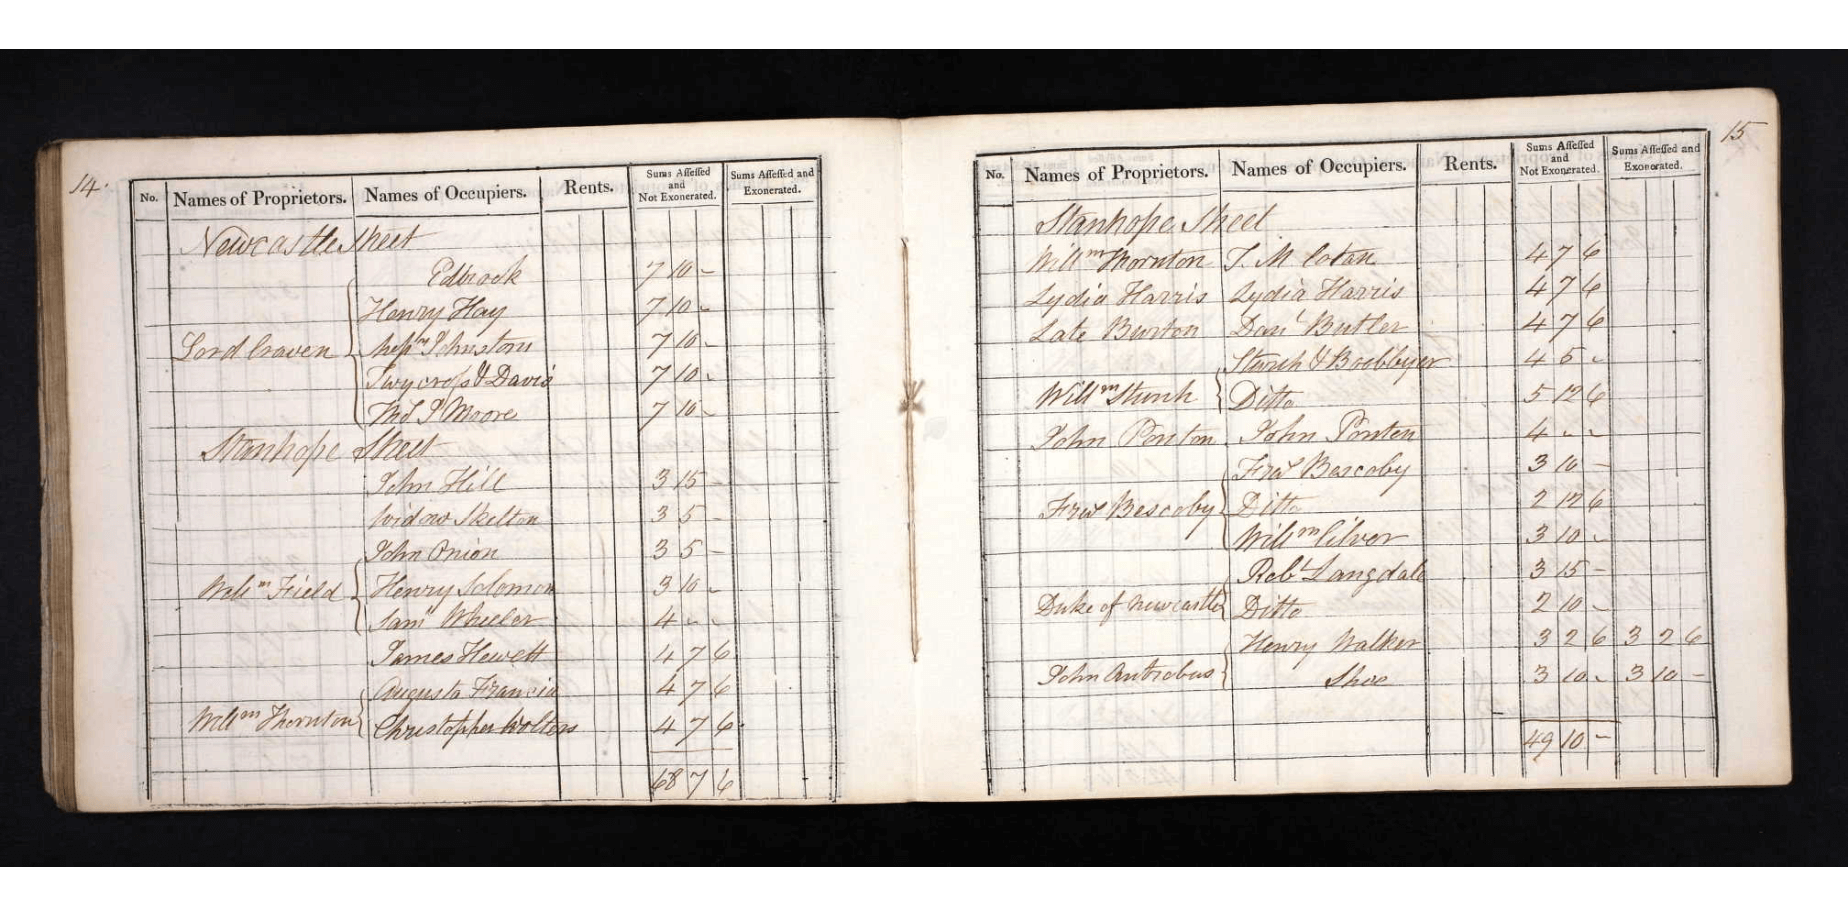 14.
No. Names of Proprietors. Names of Occupiers. Rents. Sums Assessed and Not Exonerated. Sums Assessed and Exonerated.
Newcastle Street
Edbrook 7 10 -
Henry Hay 7 10 -
Lord Craven Johnston 7 10 -
Twycross & Davis 7 10 -
Thos P Moore 7 10 -
Stanhope Street
John Hill 3 15 -
Widow Skelton 3 5 -
John Onion 3 5 -
Willm Field Henry Solomon 3 10 -
Saml Wheeler 4 - -
James Hewett 4 7 6
Augusta Francis 4 7 6
Willm Thornton Christopher Wolters 4 7 6
68 7 6
15
No. Names of Proprietors. Names of Occupiers. Rents. Sums Assessed and Not Exonerated. Sums Assessed and Exonerated.
Stanhope Street
Willm Thornton T. M 4 7 6
Lydia Harris Lydia Harris 4 7 6
Late Burton Danl Butler 4 7 6
& Boobbyer 4 5 -
Willm Ditto 5 12 6
John Ponton John Ponten 4 - -
Fras Bescoby 3 10 -
Fras Bescoby Ditto 2 12 6
Willm Cilver 3 10 -
Robt Langdale 3 15 -
Duke of Newcastle Ditto 2 10 -
Henry Walker 3 2 6 3 2 6
John Antrobus Shoe 3 10 - 3 10 -
49 10 -